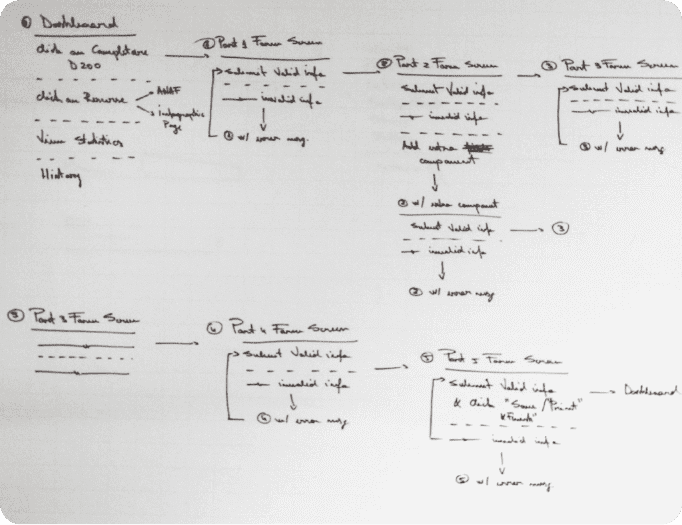 ⓪ Dashboard
click on Completare
D200
click on Resurse
ANAF
Infographic
Page
View Statistics
History
① Part 1 Form Screen
submit Valid info
invalid info
① w/ error msg.
② Part 2 Form Screen
submit Valid info
invalid info
Add extra
component
② w/ extra component
submit Valid info
③
invalid info
② w/ error msg
③ Part 3 Form Screen
submit Valid info
invalid info
③ w/ error msg.
③ Part 3 Form Screen
④ Part 4 Form Screen
submit Valid info
invalid info
④ w/ error msg
⑤ Part 5 Form Screen
submit Valid info
& click "Save/"Print"
Dashboard
invalid info
⑤ w/ error msg